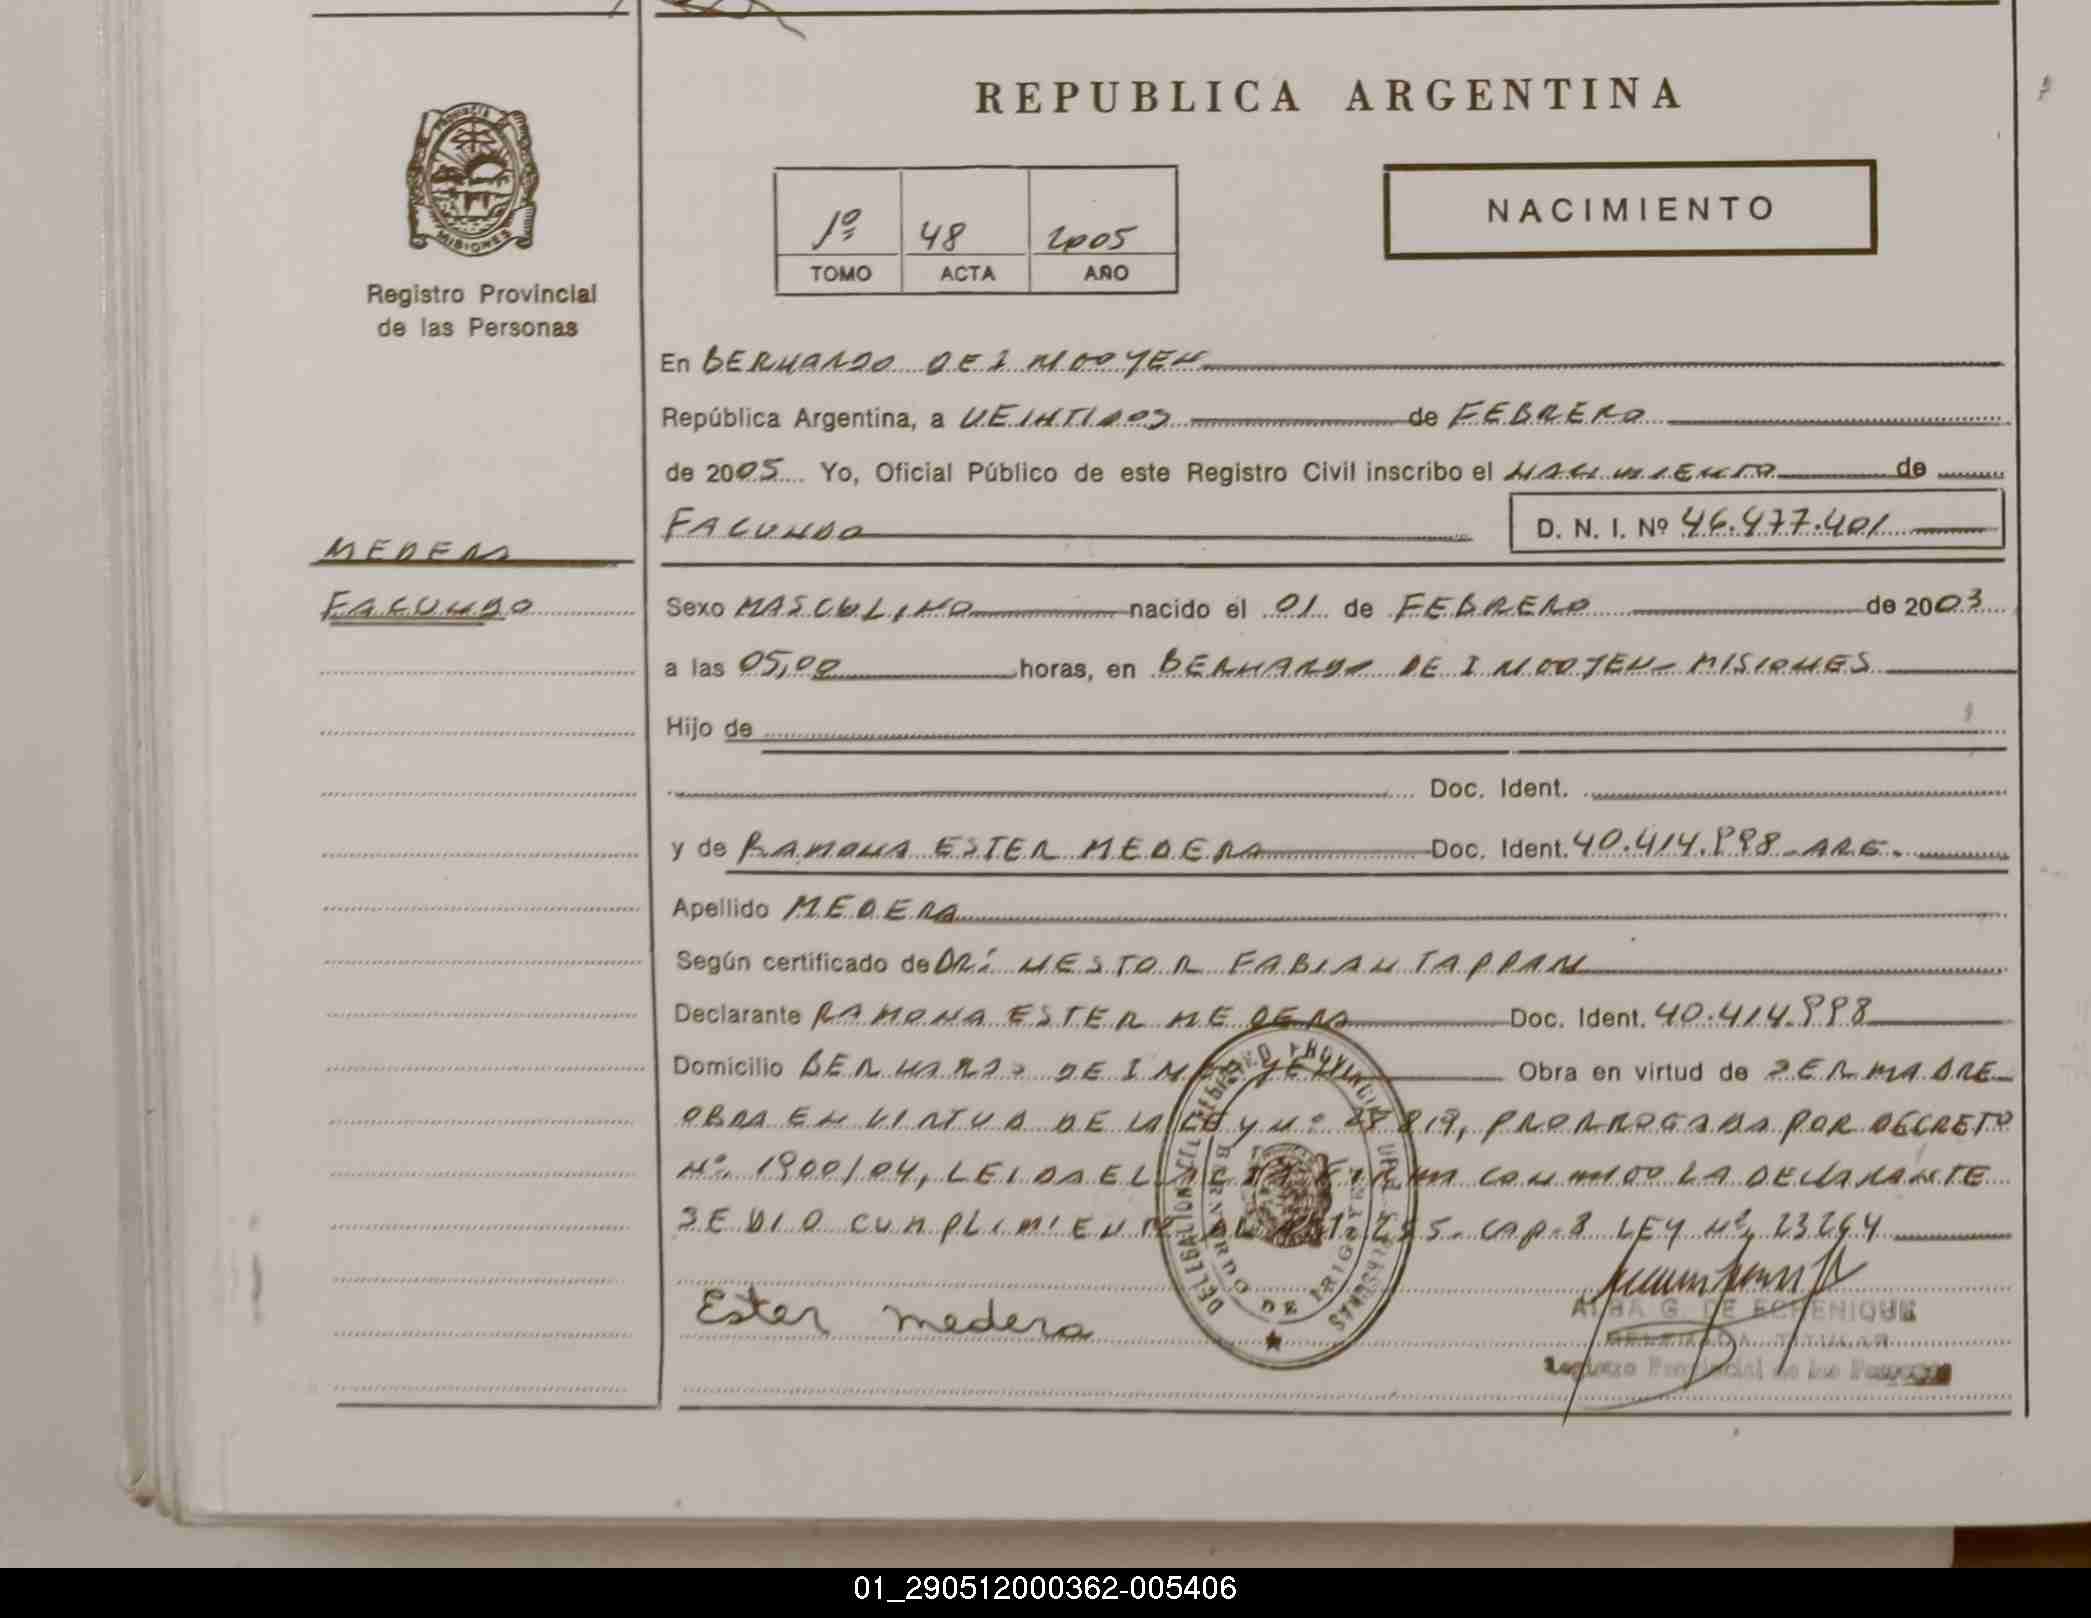 REPUBLICA ARGENTINA
PROVINCIA DE
MISIONES
Registro Provincial
de las Personas
NACIMIENTO
1º 48 2005
TOMO ACTA AÑO
En BERNARDO DE IRIGOYEN
República Argentina, a VEINTIDOS de FEBRERO
de 2005 Yo, Oficial Público de este Registro Civil inscribo el NACIMIENTO de
FACUNDO D. N. I. Nº 46.477.401
MEDERA
FACUNDO
Sexo MASCULINO nacido el 01 de FEBRERO de 2003
a las 05,00 horas, en BERNARDO DE IRIGOYEN - MISIONES
Hijo de
Doc. Ident.
y de RAMONA ESTER MEDERA Doc. Ident. 40.414.998 - ARG.
Apellido MEDERA
Según certificado de DR: NESTOR FABIAN TAPPARI
Declarante RAMONA ESTER MEDERA Doc. Ident. 40.414.998
Domicilio BERNARDO DE IRIGOYEN Obra en virtud de SER MADRE
OBRA EN VIRTUD DE LA LEY Nº 25819, PRORROGADA POR DECRETO
Nº 1900/04, LEIDA EL ACTA FIRMA CONMIGO LA DECLARANTE
SE DIO CUMPLIMIENTO AL ART. 255. CAP. 8 LEY Nº 23264
Ester medera
DELEGACION DEL REGISTRO PROVINCIAL DE LAS PERSONAS
BERNARDO DE IRIGOYEN
ALBA G. DE ECHENIQUE
DELEGADA TITULAR
Registro Provincial de las Personas
01_290512000362-005406